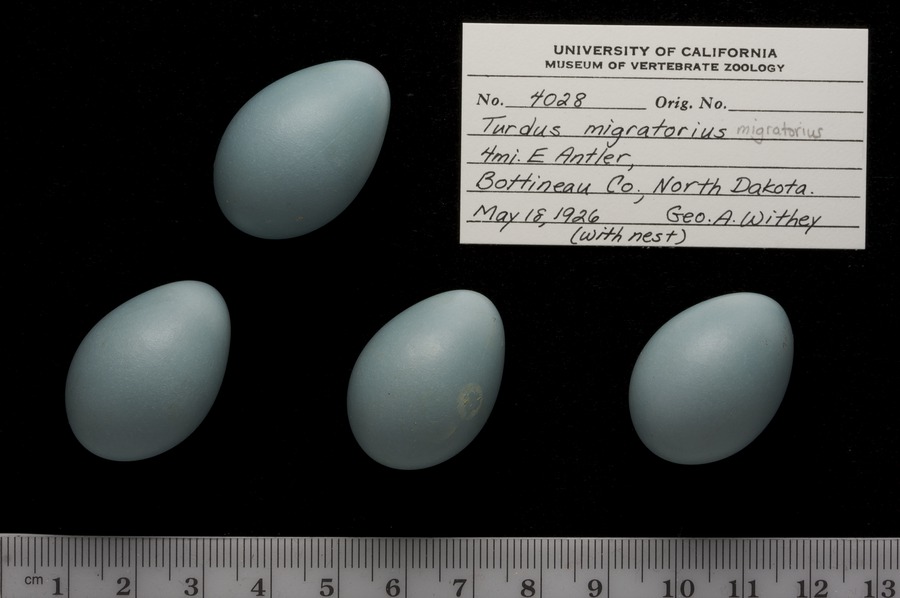 UNIVERSITY OF CALIFORNIA
MUSEUM OF VERTEBRATE ZOOLOGY
No. 4028 Orig. No.
Turdus migratorius migratorius
4mi. E Antler,
Bottineau Co., North Dakota.
May 18, 1926 Geo. A. Withey
(with nest)
cm 1 2 3 4 5 6 7 8 9 10 11 12 13